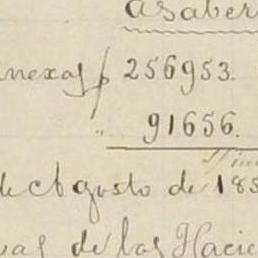 asaber
nexas p 256953.
" 91656.
de Agosto de 185
as de las Hacie